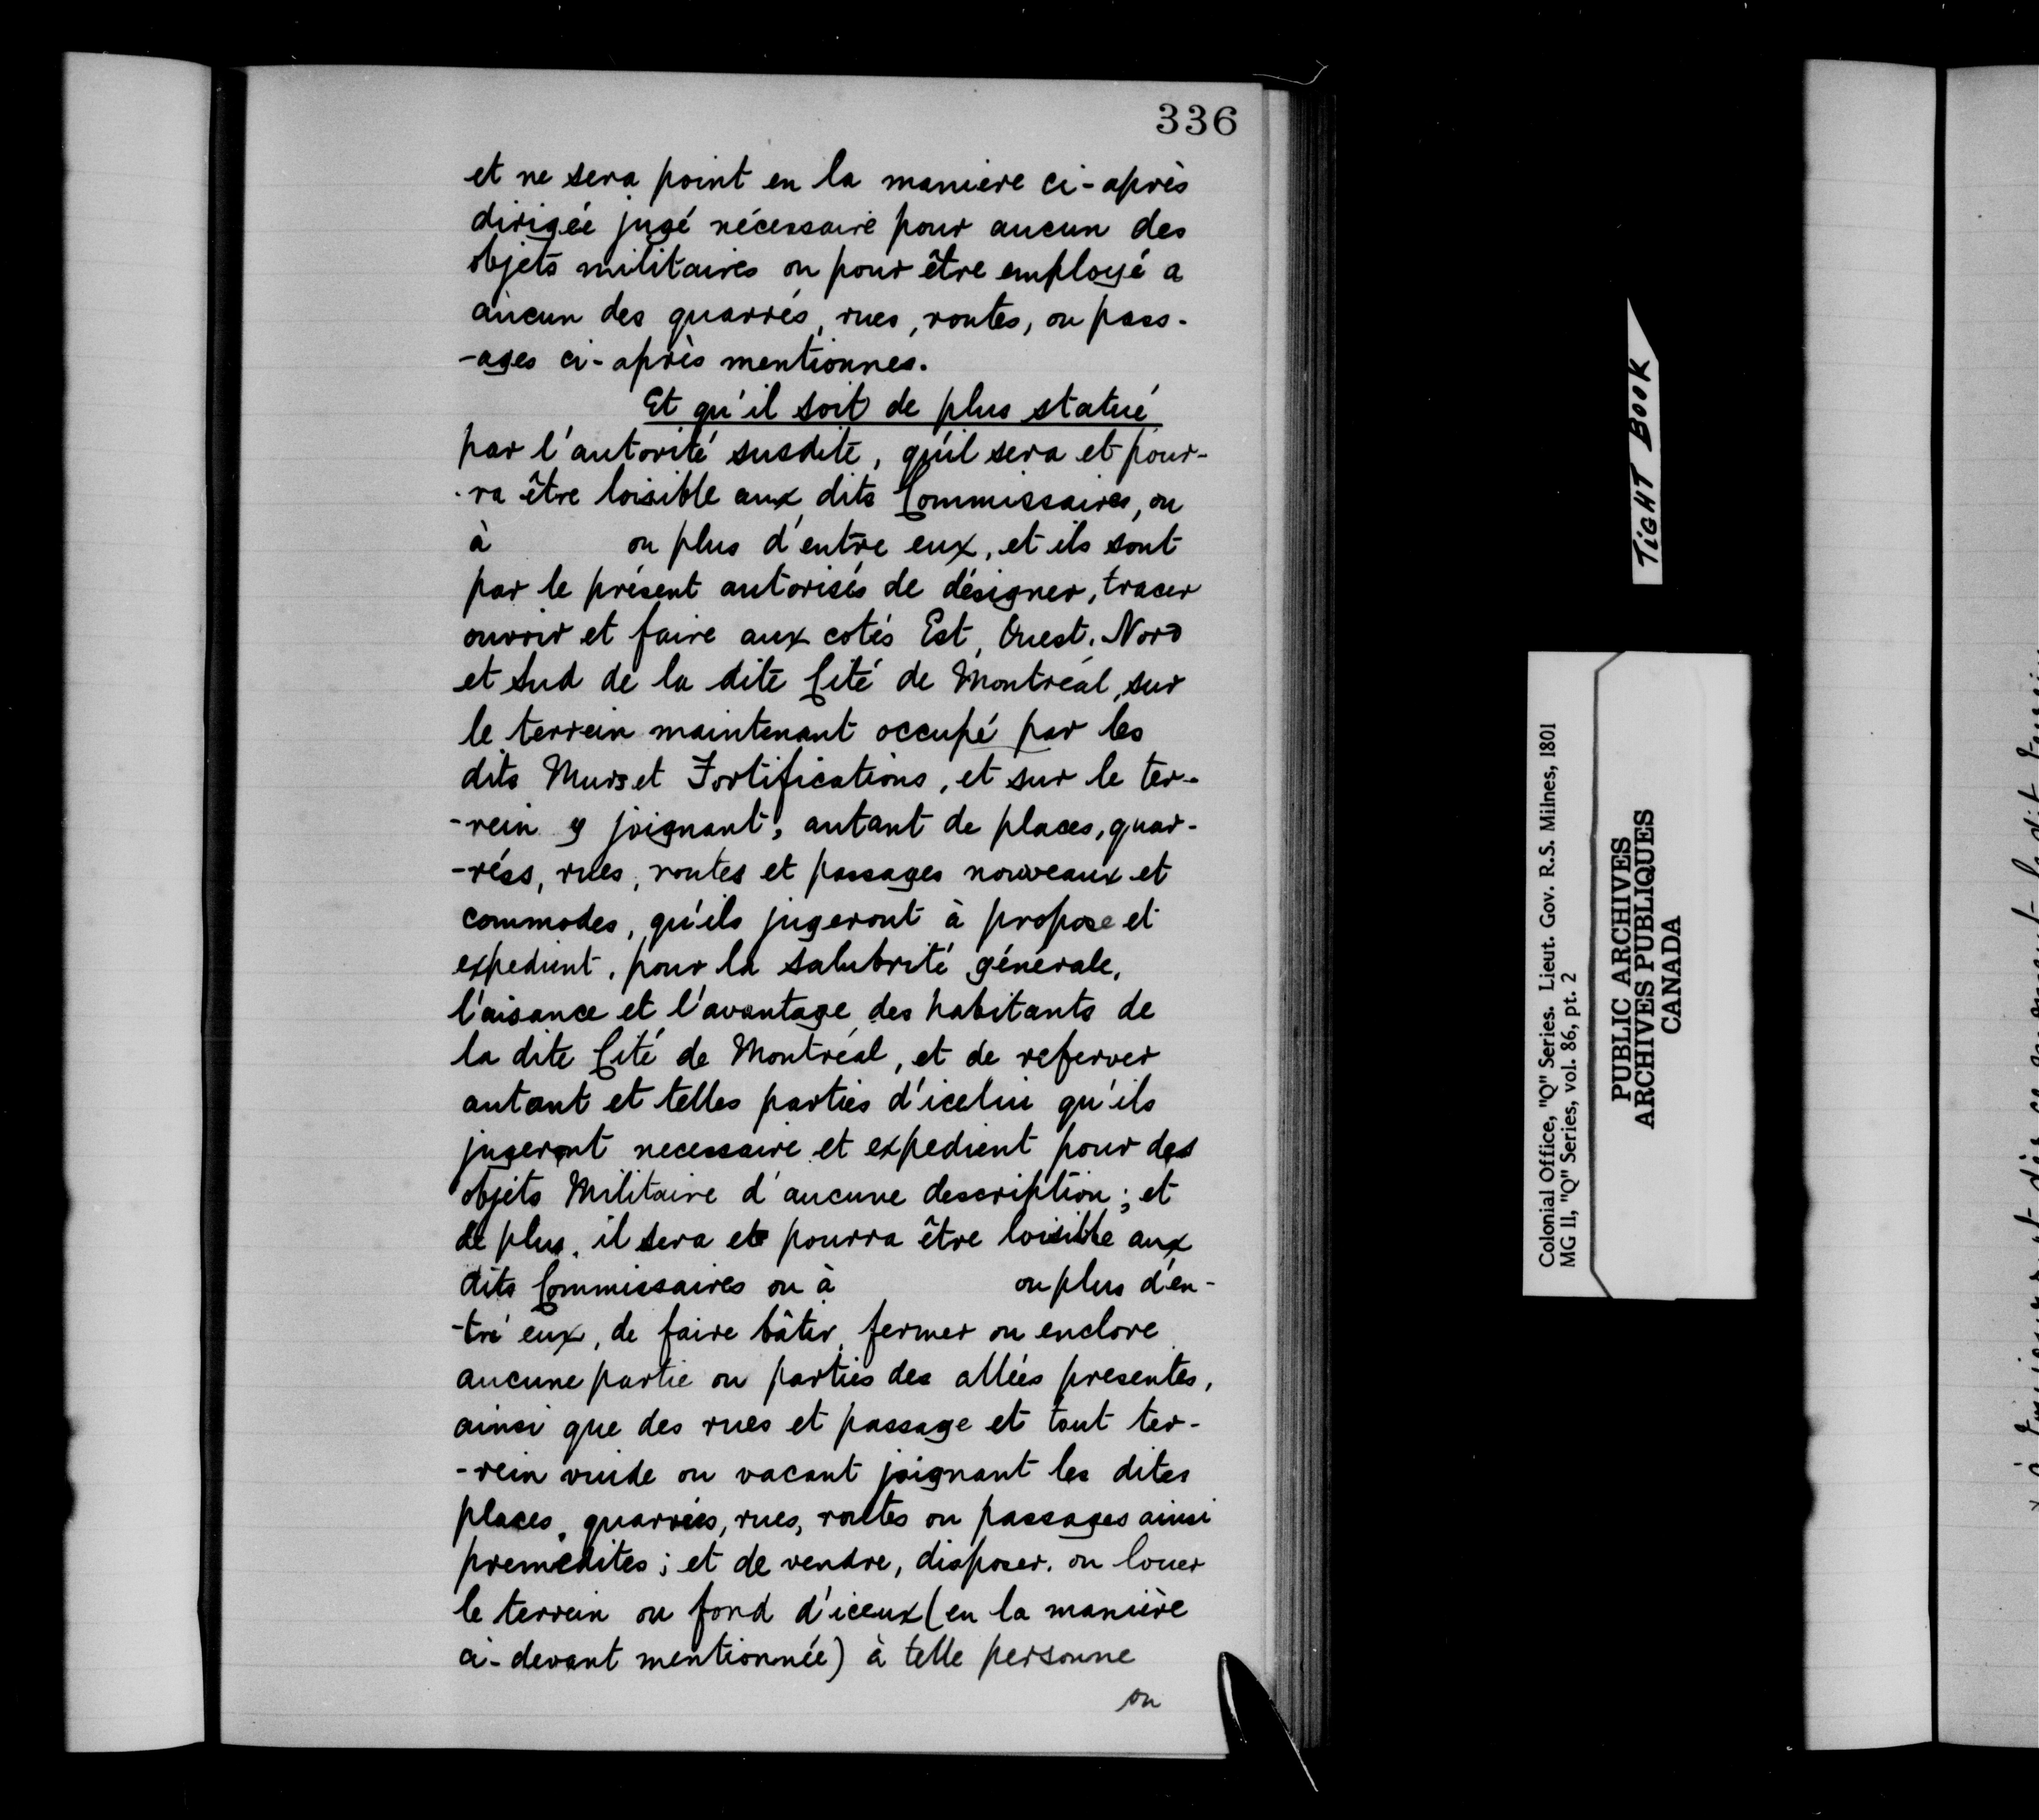 336
et ne sera point en la maniere ci-après
dirigée jugé nécessaire pour aucun des
objets militaires ou pour être employé a
aucun des quarrés, rues, routes, ou pass-
-ages ci-après mentionnes.
Et qu'il soit de plus statué
par l'autorité susdite, qu'il sera et pour-
-ra être loisible aux dits Commissaires, ou
à ou plus d'entre eux, et ils sont
par le présent autorisés de désigner, tracer
ouvrir et faire aux cotés Est, Ouest, Nord
et Sud de la dite Cité de Montréal, sur
le terrein maintenant occupé par les
dits Murs et Fortifications, et sur le ter-
-rein y joignant, autant de places, quar-
-réss, rues, routes et passages nouveaux et
commodes, qu'ils jugeront à propose et
expedient, pour la salubrité générale,
l'aisance et l'avantage des habitants de
la dite Cité de Montréal, et de referver
autant et telles parties d'icelui qu'ils
jugeront necessaire et expedient pour des
objets Militaire d'aucune description; et
de plus, il sera et pourra être loisible aux
dits Commissaires ou à ou plus d'en-
-tre eux, de faire bâtir, fermer ou enclore
aucune partie ou parties des allées presentes,
ainsi que des rues et passage et tout ter-
-rein vuide ou vacant joignant les dites
places, quarrées, rues, routes ou passages ainsi
premedites; et de vendre, disposer, ou louer
le terrein ou fond d'iceux (en la manière
ci-devant mentionnée) à telle personne
ou
TIGHT BOOK
Colonial Office, "Q" Series. Lieut. Gov. R.S. Milnes, 1801
MG 11, "Q" Series, vol. 86, pt. 2
PUBLIC ARCHIVES
ARCHIVES PUBLIQUES
CANADA